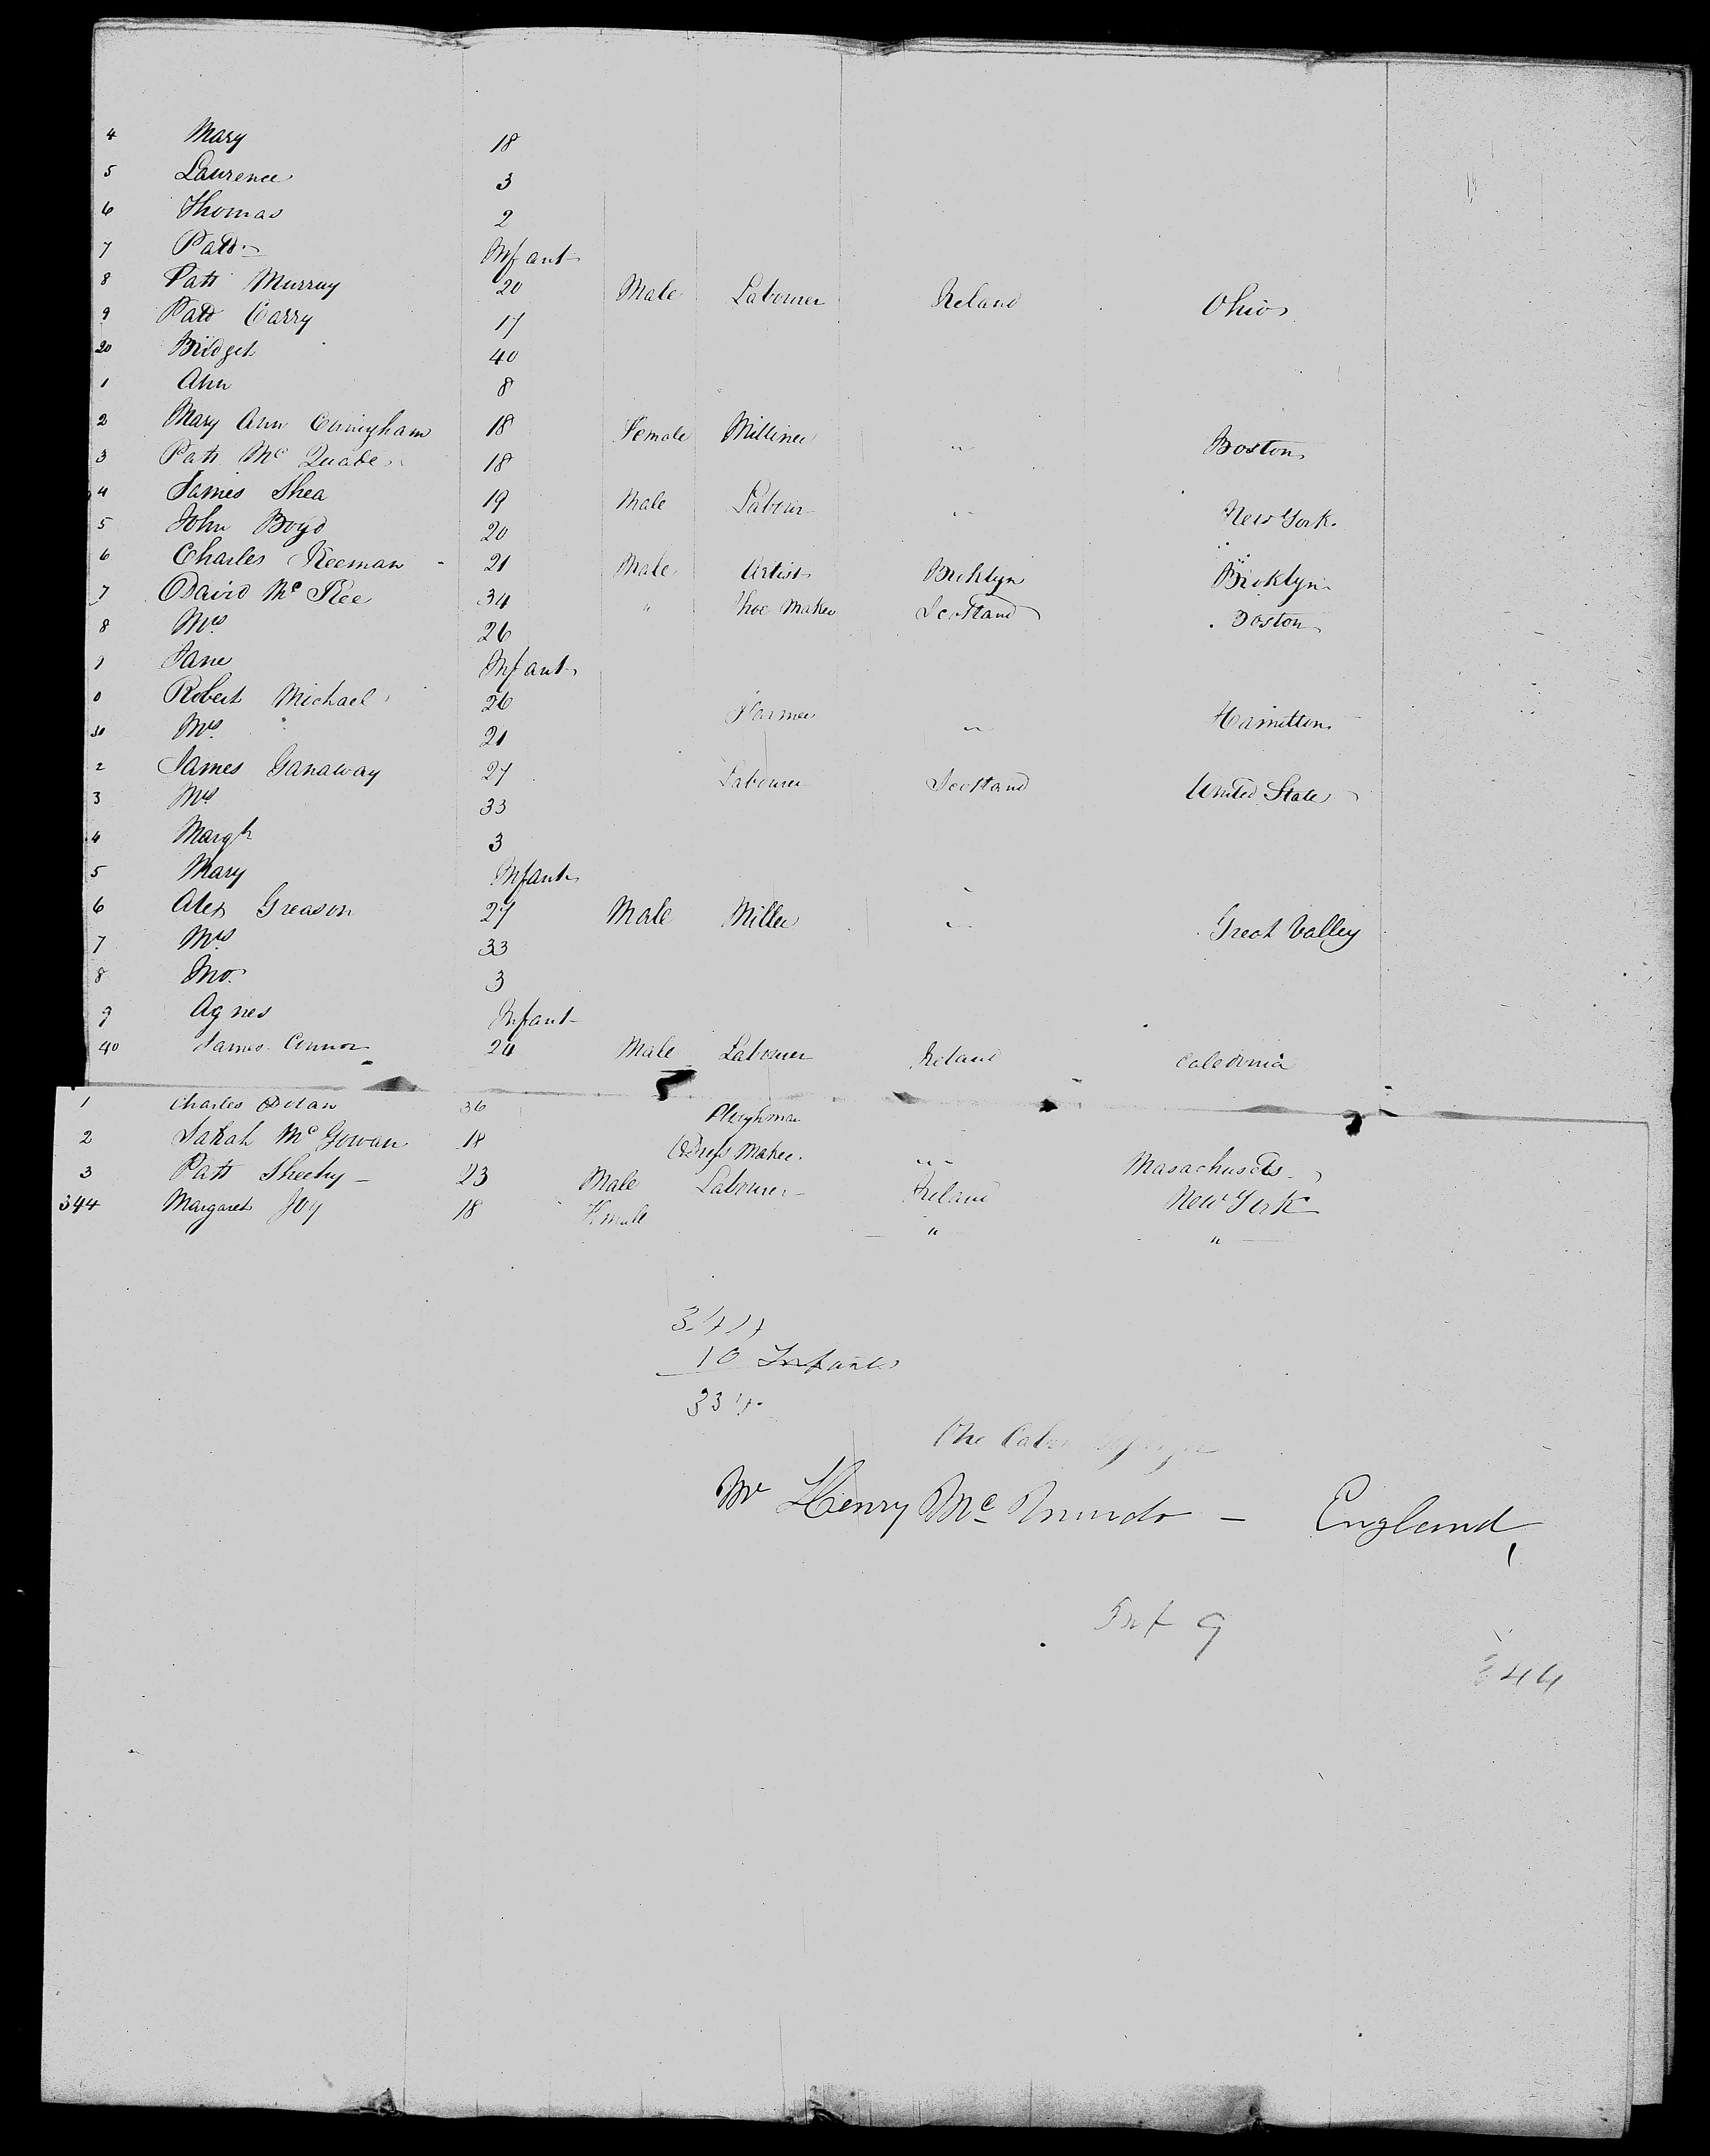 4 Mary 18
5 Laurence 3
6 Thomas 2
7 Patk Infant
8 Patk Murray 20 Male Labourer Ireland Ohio
9 Patk Carry 17
20 Bridget 40
1 Ann 8
2 Mary Ann Cuningham 18 Female Milliner " Boston
3 Patk Mc Quade 18
4 James Shea 19 Male Labour " New York
5 John Boyd 20
6 Charles Keeman 21 Male Artist Broklyn Broklyn
7 David Mc Kee 34 " Shoe Maker Scotland Boston
8 Mrs 26
9 Jane Infant
0 Robert Michael 26 Farmer " Hamilton
31 Mrs 21
2 James Ganaway 27 Labourer Scotland United State
3 Mrs 33
4 Margt 3
5 Mary Infant
6 Alex Greason 27 Male Miller " Great Valley
7 Mrs 33
8 Jno. 3
9 Agnes Infant
40 James Connor 24 Male Labourer Ireland Caledonia
1 Charles Dolan 36 Ploughman
2 Sarah Mc Gowan 18 Dress Maker " Masachusets
3 Patk Sheehy 23 Male Labourer Ireland New York
344 Margaret Joy 18 Female " "
344
10 Infants
334
One Cabin
Mr Henry Mc - England
Inf 9
344